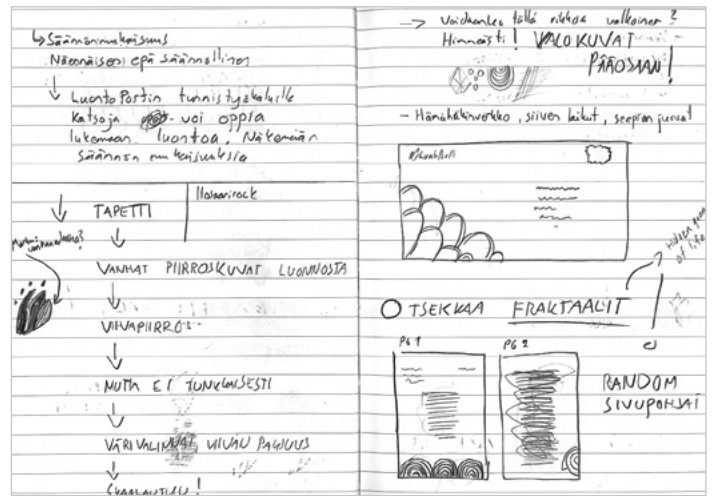 Säännönmukaisuus
Näennäisen epäsäännöllinen
LuontoPortin tunnistustyökaluille
Katsoja voi oppia
lukemaan luontoa, Näkemään
säännönmukaisuuksia
TAPETTI
Ilosaarirock
VANHAT PIIRROSKUVAT LUONNOSTA
VIIVAPIIRROS
MUTTA EI TUNKKAISESTI
VÄRIVALINNAT, VIIVAN PAKSUUS
SKAALAUTUU!
Voidaanko tällä rikkoa valkoinen?
Himmeästi! VALOKUVAT
PÄÄOSAAN!
- Hämähäkinverkko, siiven laikut, seepran juovat
TSEKKAA FRAKTAALIT
PG 1
PG 2
RANDOM
SIVUPOHJAT